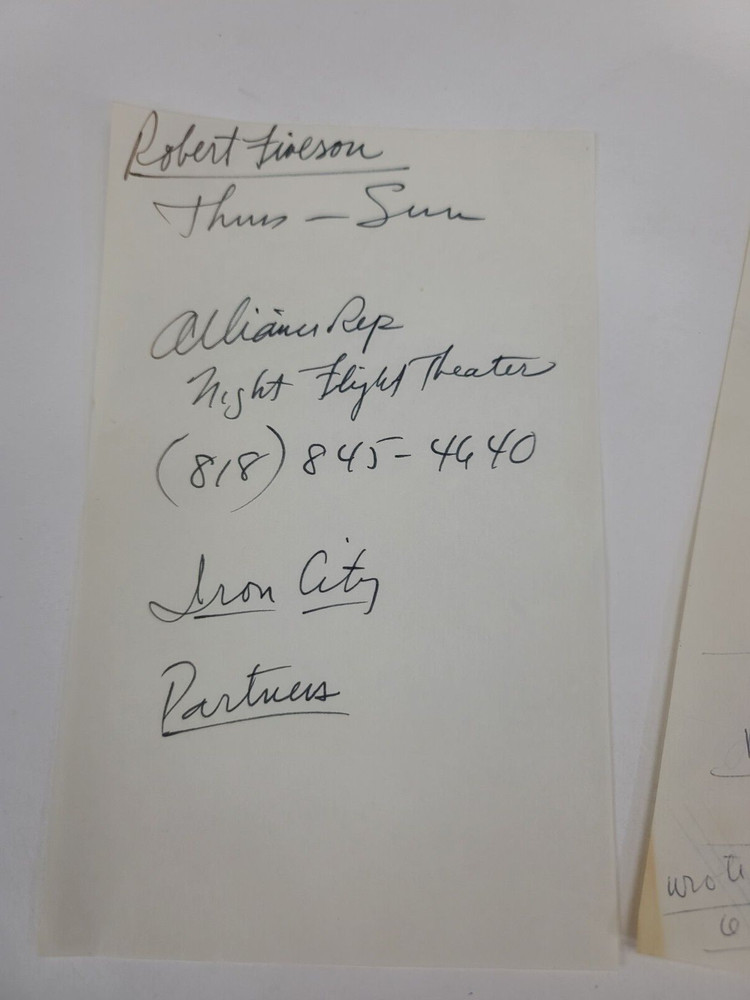 Robert Fiveson
Thurs – Sun
Alliance Rep
Night Flight Theater
(818) 845-4640
Iron City
Partners
wrote
6